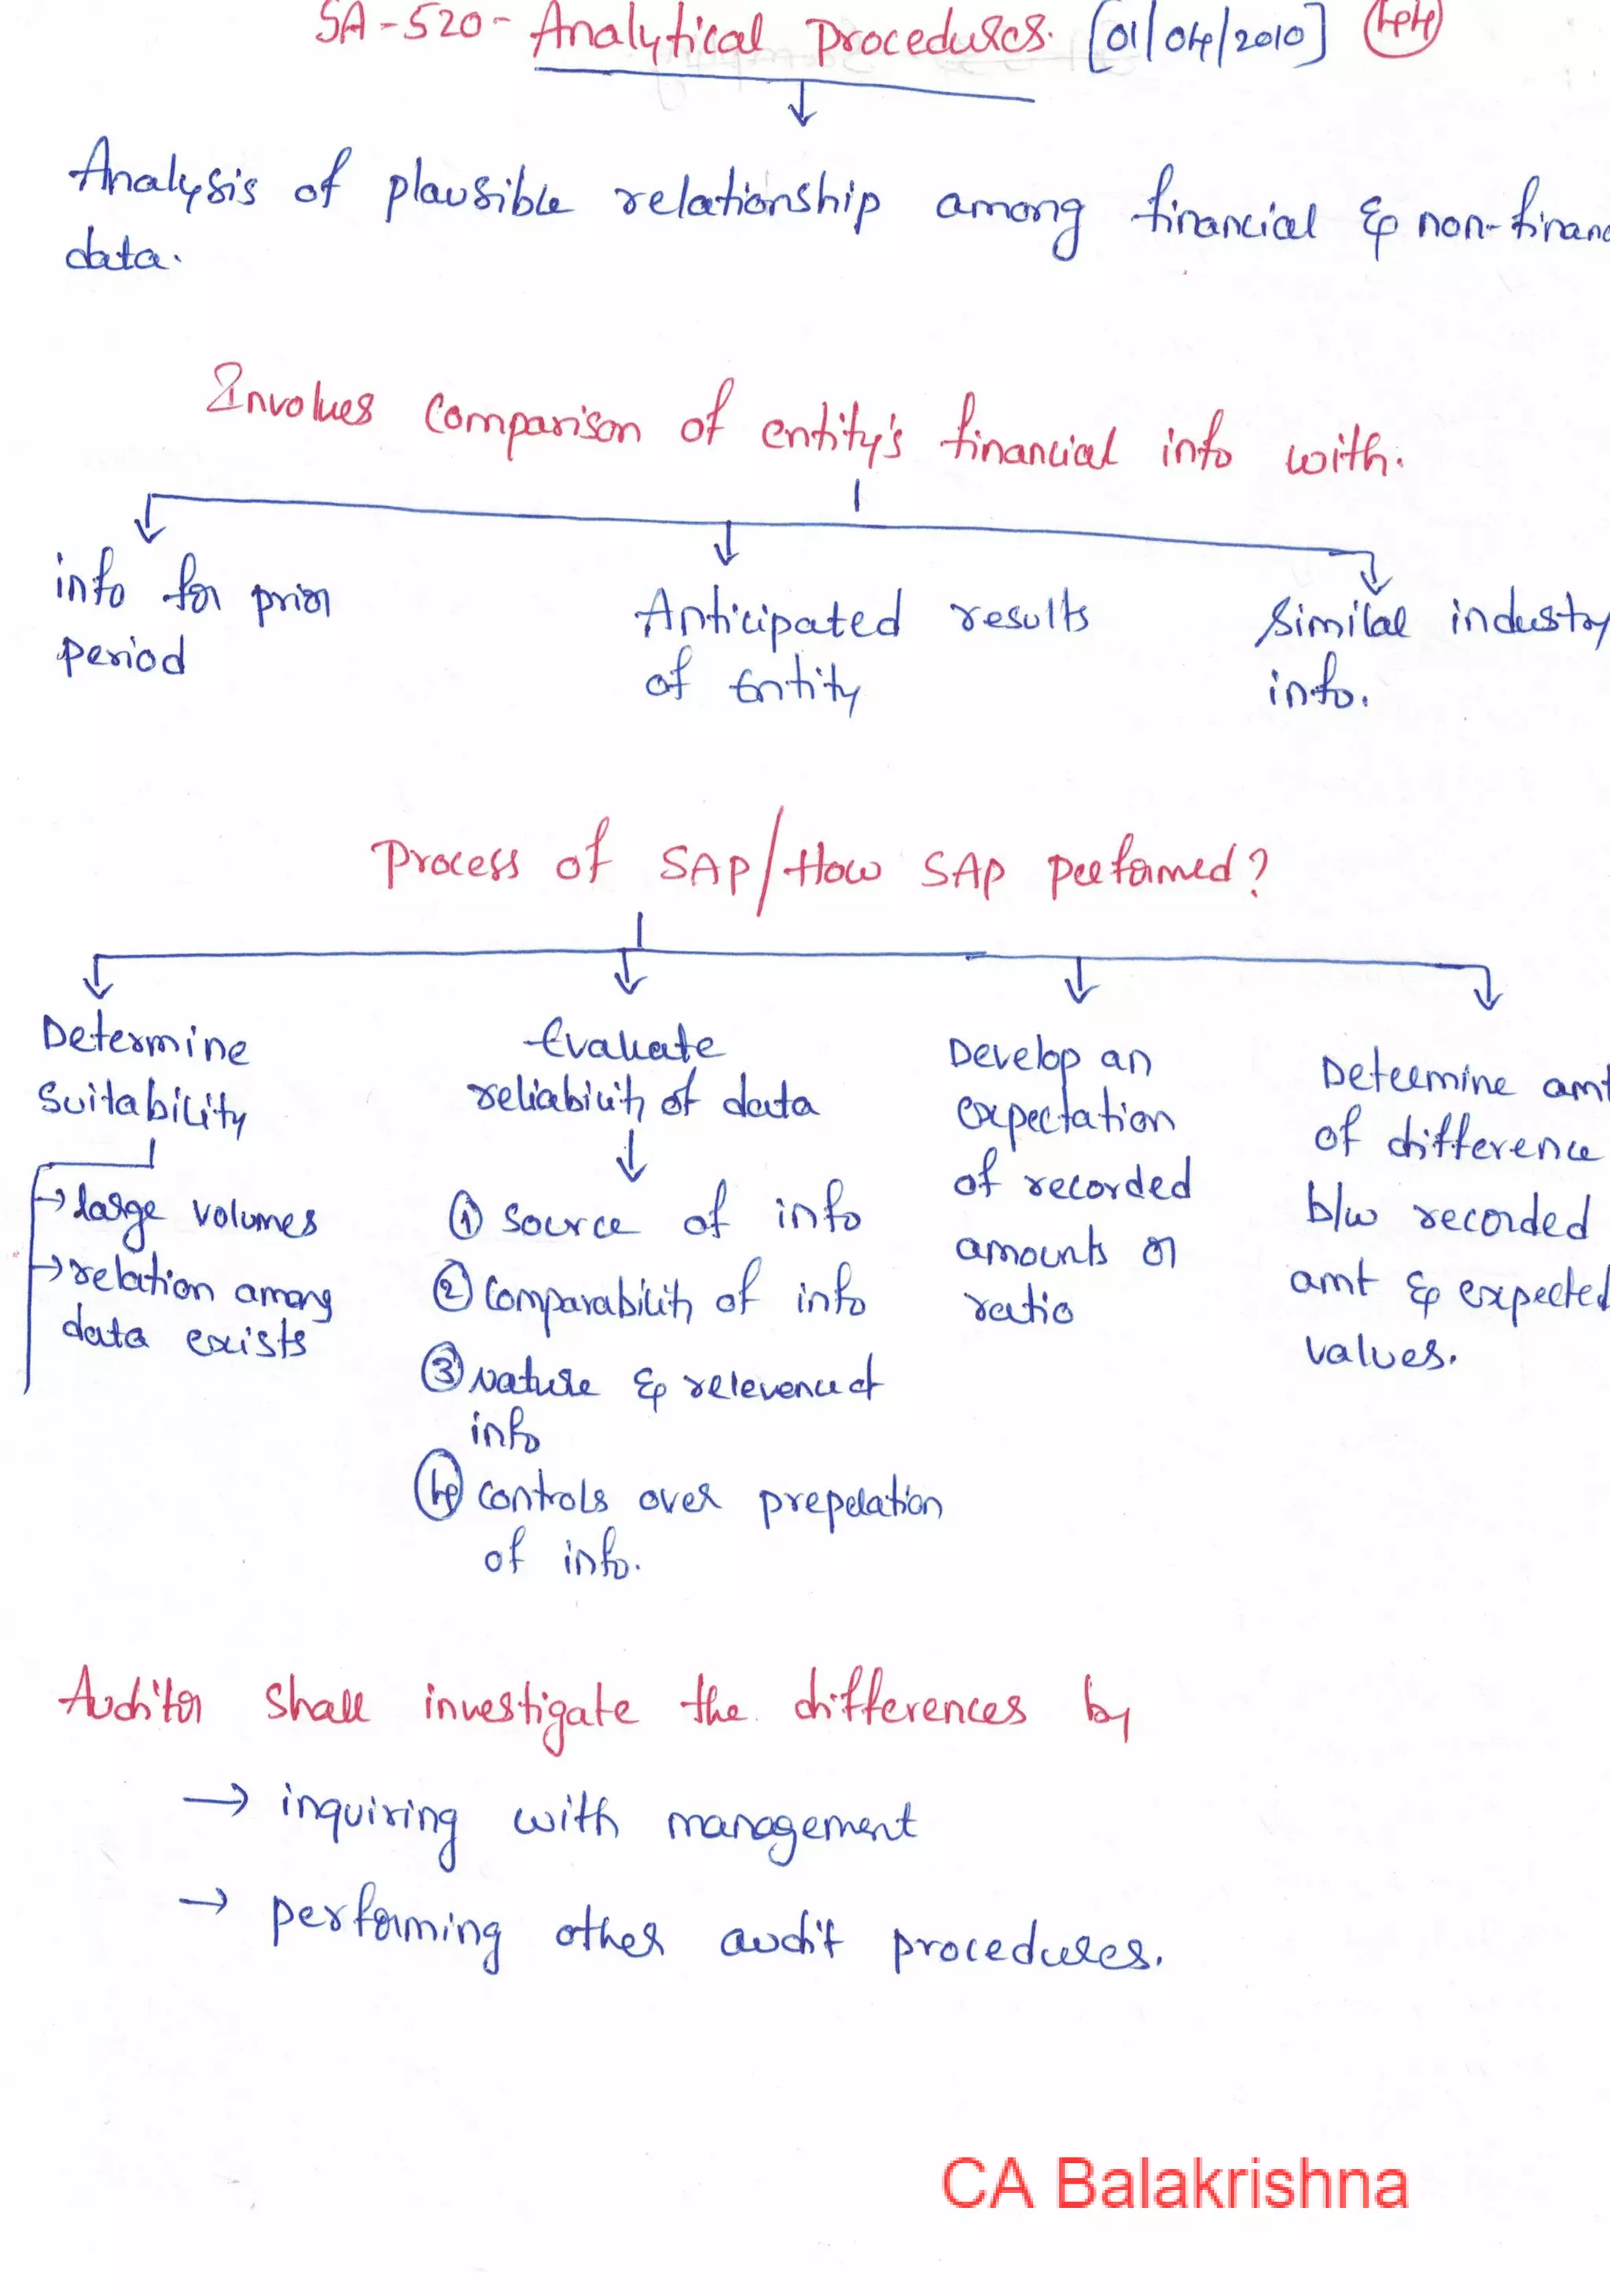 SA-520- Analytical Procedures. [01/04/2010] 44
Analysis of plausible relationship among financial & non-financ
data.
Involves Comparison of entity's financial info with.
info for prior
period
Anticipated results
of Entity
Similar industry
info.
Process of SAP/How SAP performed?
Determine
Suitability
→ large volumes
→ relation among
data exists
Evaluate
reliability of data
① Source of info
② Comparability of info
③ Nature & relevence of
info
④ Controls over preperation
of info.
Develop an
expectation
of recorded
amounts or
ratio
Determine amt
of difference
b/w recorded
amt & expected
values.
Auditor shall investigate the differences by
→ inquiring with management
→ performing other audit procedures.
CA Balakrishna